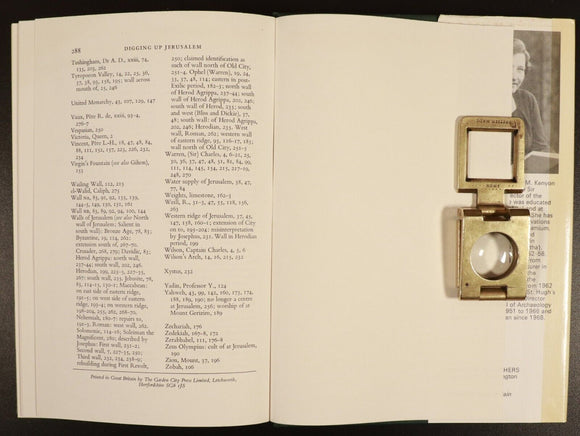 288 DIGGING UP JERUSALEM
Tushingham, Dr A. D., xxiii, 74,
135, 205, 262
Tyropoeon Valley, 14, 22, 25, 36,
37, 38, 93, 195, 232; wall across
mouth of, 25, 246
United Monarchy, 43, 107, 129, 147
Vaux, Père R. de, xxiii, 92-4,
276-7
Vespasian, 250
Victoria, Queen, 2
Vincent, Père L.-H., 18, 47, 48, 84,
88, 111, 131, 137, 225, 226, 232,
234
Virgin's Fountain (see also Gihon),
131
Wailing Wall, 112, 213
el-Walid, Caliph, 275
Wall NA, 83, 91, 92, 135, 139,
144-5, 149, 131, 150, 151
Wall NB, 83, 89, 92, 94, 100, 144
Walls of Jerusalem (see also North
wall of Jerusalem; Salient in
south wall): Bronze Age, 78, 83;
Byzantine, 19, 114, 262;
extension south of, 267-70.
Crusader, 268, 279; Davidic, 83;
Herod Agrippa: north wall,
237-44; south wall, 202, 246.
Herodian, 199, 223-5, 227-35,
267; south of city, 223;
Josephus on, 232. Jebusite, 78,
83, 114-5, 130-1; Maccabean:
on east side of eastern ridge,
191-5; on west side of eastern
ridge, 193; on western ridge,
198-204, 255, 262, 268, 270.
Nehemiah, 180-7: repairs to,
191-3. Roman: west wall, 262.
Solomonic, 114-16; Suleiman the
Magnificent, 280; described by
Josephus: First wall, 231-2;
Second wall, 7, 227-35, 250;
Third wall, 232, 234, 238-9;
rebuilding during First Revolt,
250; claimed identification as
such of wall north of Old City,
251-4. Ophel (Warren), 19, 24,
33, 37, 48, 114; eastern in post-
Exilic period, 182-3; north wall
of Herod Agrippa, 237-44; south
wall of Herod Agrippa, 202, 246;
north of Old City, 233; south
and west (Bliss and Dickie), 37,
51, 48; south wall of Herod
Agrippa, 202, 246; Herodian, 235. West
wall, Roman, 262; western wall
of eastern ridge, 95, 116-17, 183;
wall north of Old City, 251-5
Warren, (Sir) Charles, 4, 6-21, 25,
30, 36, 37, 47, 48, 51, 84, 94, 99,
111, 114, 145, 154, 215, 217-19,
248, 270
Water supply of Jerusalem, 58, 67,
77, 84
Weights, limestone, 162-5
Weill, R., 31-3, 47, 55, 138, 156,
263
Western ridge of Jerusalem, 37, 45,
147, 138, 160-1; extension of City
on to, 193-204: misinterpretation
by Josephus, 231. Wall in Herodian
period, 199
Wilson, Captain Charles, 4, 5, 6
Wilson's Arch, 14, 16, 213
Xystus, 232
Yadin, Professor Y., 124
Yahweh, 43, 99, 142, 160, 173, 174,
188, 189, 190; no longer a centre
at Jerusalem, 256; worship of at
Mount Gerizim, 189
Zechariah, 176
Zedekiah, 167-8, 172
Zerubbabel, 111, 176-8
Zeus Olympius: cult of at Jerusalem,
190
Zion, Mount, 37, 196
Zobah, 106
Printed in Great Britain by The Garden City Press Limited, Letchworth,
Hertfordshire SG6 1JS
M. Kenyon
Sir
ctor of the
was educated
She has
vations
from
1962
St. Hugh's
Director
l of Archaeology
951 to 1966 and
an since 1968.
HERS
ngton
ain